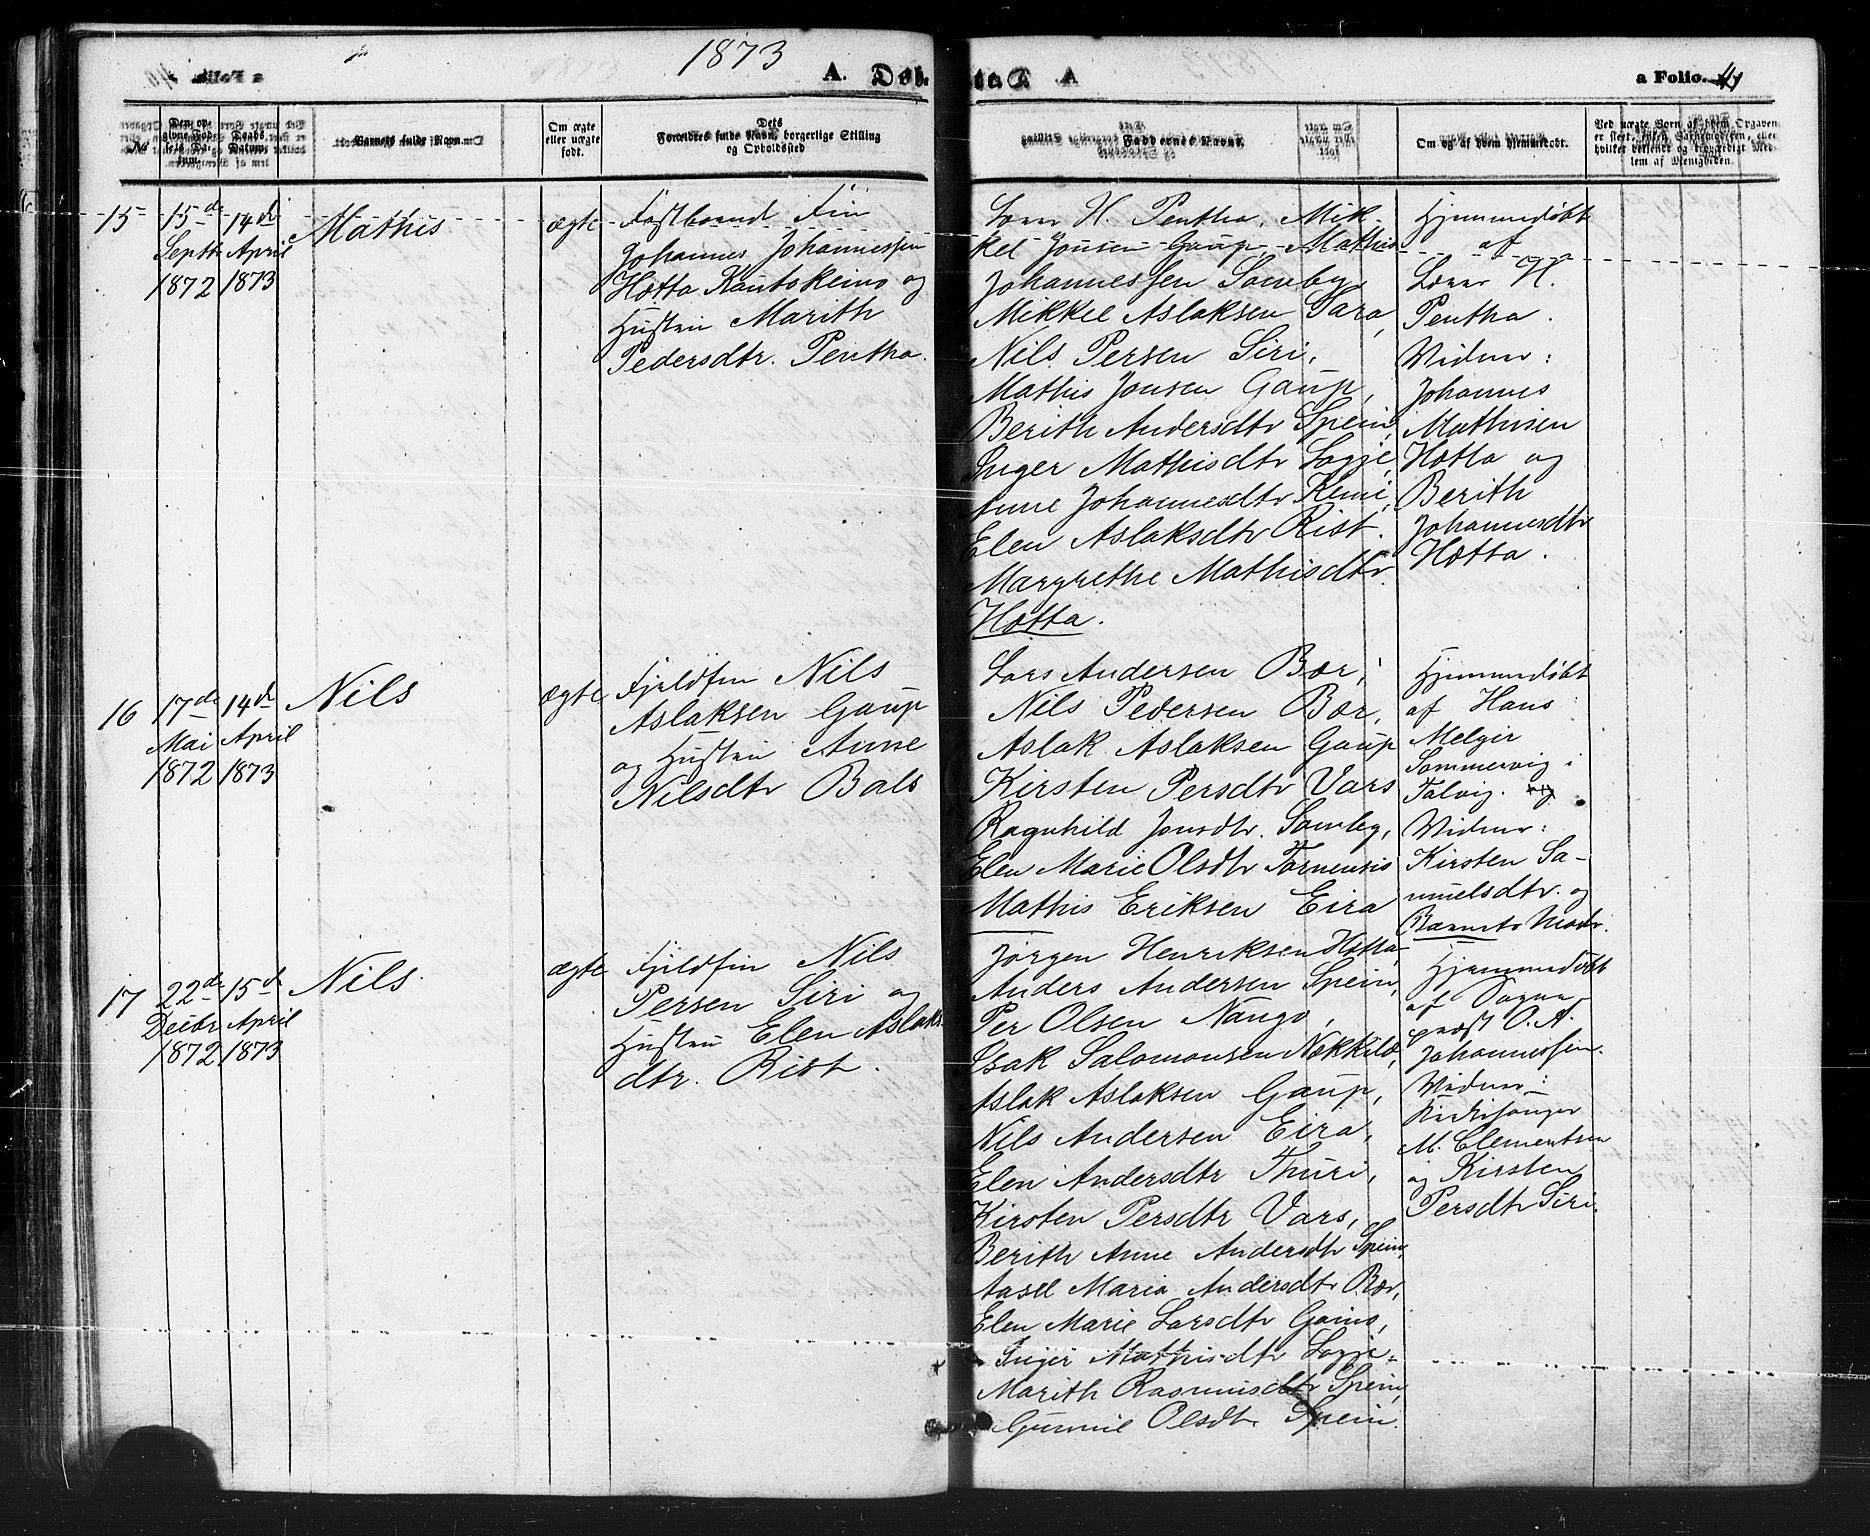 1873
A. Døbte A
a Folio. 41
No
Den opgivne Fødsels Datum.
Daabs Datum.
Barnets fulde Navn.
Om ægte eller uægte født.
Forældres fulde Navn, Dets borgerlige Stilling og Opholdssted
Faddernes Navne.
Om og af hvem hjemmedøbt.
Ved uægte Børn af hvem Opgaven er sleet, enten Barnemoderen, eller hvilket velkjendt og troværdigt Medlem af Menigheden.
15
15de
Septbr
1872
14de
April
1873
Mathis
ægte
Fastboend Fin
Johannes Johannessen
Hætta Kautokeino og
Hustru Marith
Pedersdtr. Pentha.
Lars H. Pentha, Mik-
kel Jonsen Gaup, Mathis
Johannessen Somby
Mikkel Aslaksen Sara,
Nils Persen Siri,
Mathis Jonsen Gaup,
Berith Andersdtr Spein,
Inger Mathisdtr Logje,
Anne Johannesdtr Kemi,
Elen Aslaksdtr Rist.
Margrethe Mathisdtr
Hætta.
Hjemmedøbt
af
Lars H.
Pentha.
Vidner:
Johannes
Mathisen
Hætta og
Berith
Johannesdtr
Hætta.
16
17de
Mai
1872
14de
April
1873
Nils
ægte
Fjeldfin Nils
Aslaksen Gaup
og Hustru Anne
Nilsdtr Bals
Lars Andersen Bær,
Nils Pedersen Bær,
Aslak Aslaksen Gaup
Kirsten Persdtr Vars
Ragnhild Jonsdtr. Somby,
Elen Marie Olsdtr Tornensis
Mathis Eriksen Eira
Hjemmedøbt
af Hans
Melgir
Sommervig i
Talvig.
Vidner:
Kirsten Sa-
muelsdtr. og
Barnets Moder.
17
22de
Decbr
1872
15de
April
1873
Nils.
ægte
Fjeldfin Nils
Persen Siri og
Hustru Elen Aslaks-
dtr. Rist.
Jørgen Henriksen Hætta,
Anders Andersen Spein,
Per Olsen Nango,
Isak Salomonsen Nækkilæ,
Aslak Aslaksen Gaup,
Nils Andersen Eira,
Elen Andersdtr Thuri,
Kirsten Persdtr Vars,
Berith Anne Andersdtr Spein,
Aasel Maria Andersdtr Bær,
Elen Marie Larsdtr Gaino,
Inger Mathisdtr Logje-
Marith Rasmusdtr Spein,
Gunnil Olsdtr Spein.
Hjemmedøbt
af Sogne-
præst O. A.
Johannessen.
Vidner:
Kirkesanger
M. Clementsen
og Kirsten
Persdtr Siri.